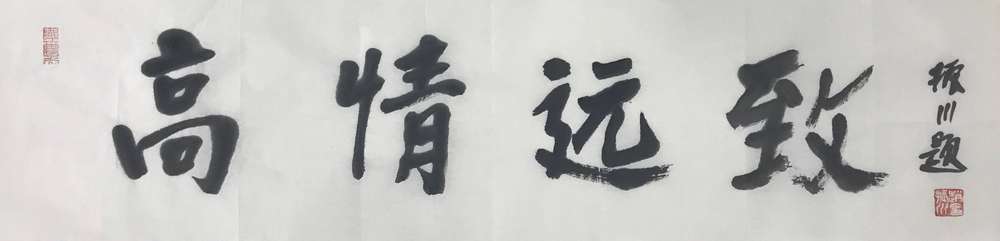 高情远致
振川题